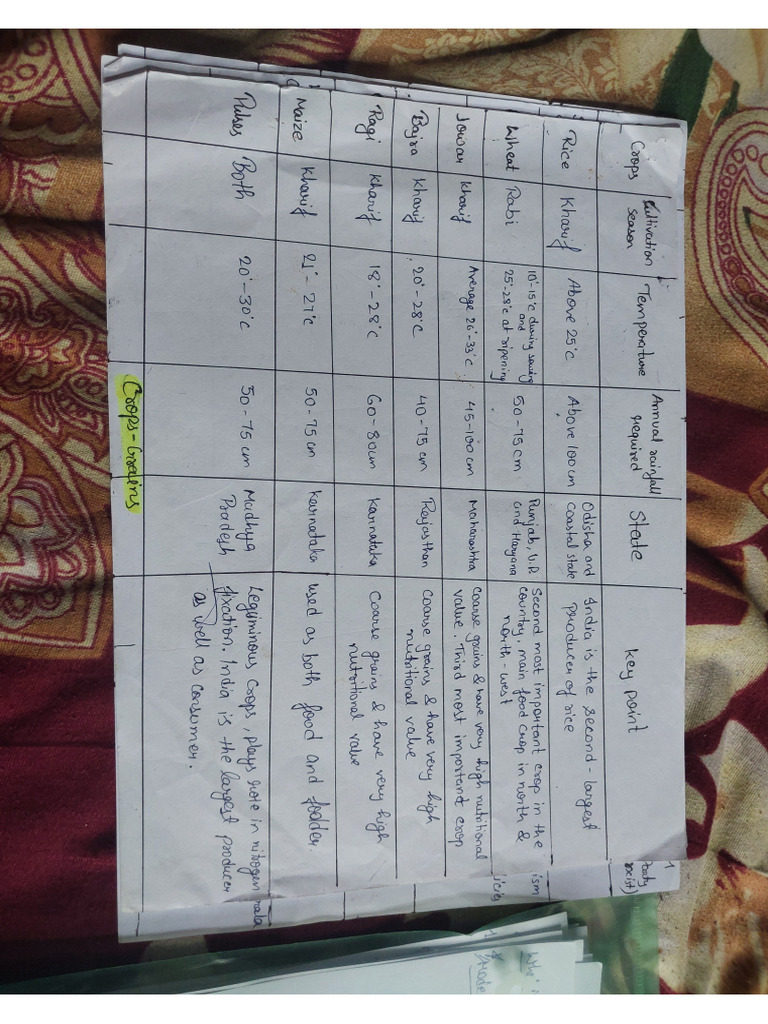 Crops
Cultivation season
Temperature
Annual rainfall required
State
key point
Rice
Kharif
Above 25°C
Above 100cm
Odisha and
Coastal state
India is the second-largest
producer of rice
Wheat
Rabi
10°-15°C during sowing
and
25°-28°C at ripening
50-75 cm
Punjab, U.P.
and Haryana
Second most important crop in the
country. main food crop in north &
north-west
Jowar
Kharif
Average 26°-33°C
45-100cm
Maharashtra
Coarse grains & have very high nutritional
value. Third most important crop
Bajra
Kharif
20°-28°C
40-75 cm
Rajasthan
Coarse grains & have very high
nutritional value
Ragi
Kharif
18°-28°C
60-80cm
Karnataka
Coarse grains & have very high
nutritional value
Maize
Kharif
21°-27°C
50-75cm
Karnataka
used as both food and fodder.
Pulses
Both
20°-30°C
50-75cm
Madhya
Pradesh
Leguminous crops, plays role in nitrogen
fixation. India is the largest producer
as well as consumer.
Crops-Grains
ism
icies